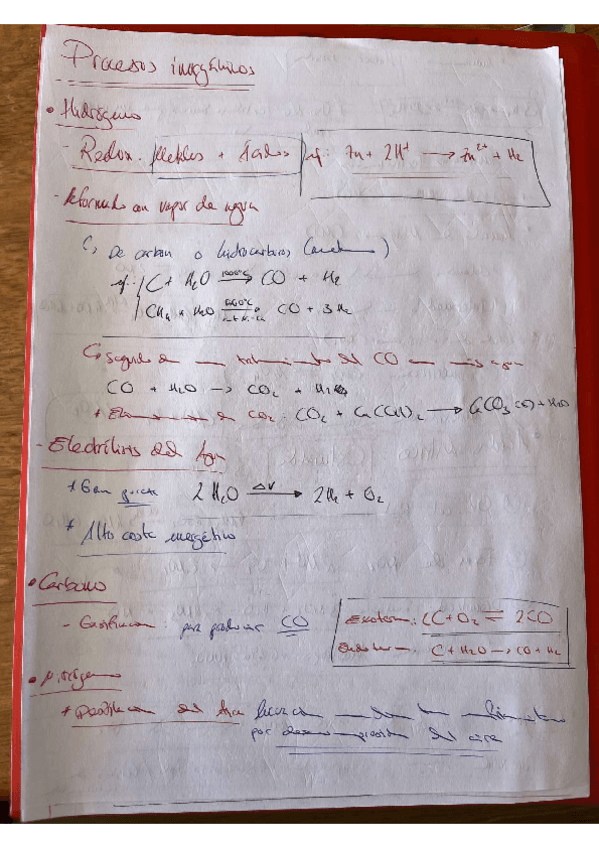 Procesos inorgánicos
• Hidrógeno
- Redox: Metales + ácidos ej: Zn + 2H⁺ → Zn²⁺ + H₂
- Reformado con vapor de agua
De carbon o hidrocarburos
ej: C + H₂O 1000°C → CO + H₂
CH₄ + H₂O → CO + 3H₂
Seguido de un tratamiento del CO con más agua
CO + H₂O → CO₂ + H₂
* Eliminación de CO₂: CO₂ + Ca(OH)₂ → CaCO₃ (s) + H₂O
- Electrólisis del Agua
* Gran pureza 2H₂O ΔV → 2H₂ + O₂
* Alto coste energético
• Carbono
- Gasificación: para producir CO Exoterm: 2C + O₂ = 2CO
Endoterm: C + H₂O → CO + H₂
• Nitrógeno
* Destilación del aire
por descompresión del aire